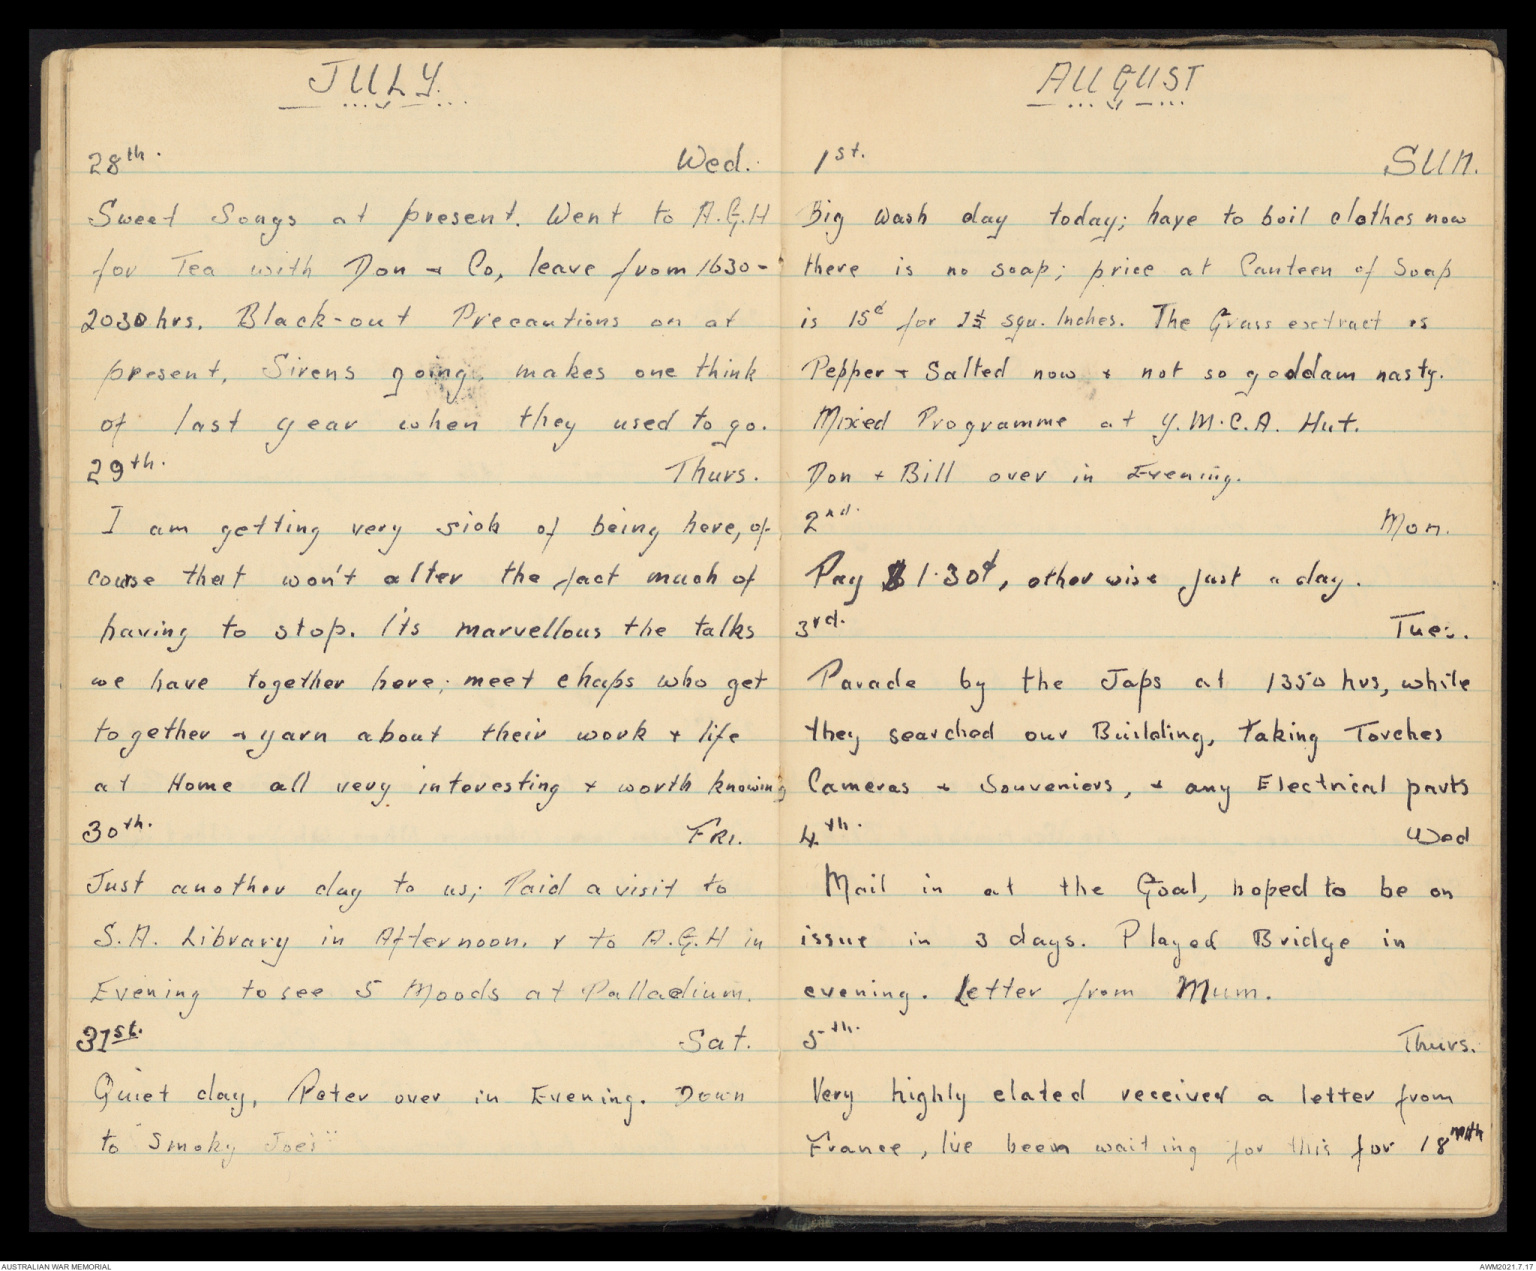 JULY.
28th. Wed.
Sweet Songs at present. Went to A.G.H
for Tea with Don + Co, leave from 1630-
2030 hrs. Black-out Precautions on at
present, Sirens going, makes one think
of last year when they used to go.
29th. Thurs.
I am getting very sick of being here, of
course that won't alter the fact much of
having to stop. It's marvellous the talks
we have together here; meet chaps who get
together + yarn about their work + life
at Home all very interesting + worth knowing
30th. FRI.
Just another day to us; Paid a visit to
S.A. Library in Afternoon. + to A.G.H in
Evening to see 5 Moods at Palladium.
31st. Sat.
Quiet day, Peter over in Evening. Down
to "Smoky Joes"
AUGUST
1st. SUN.
Big wash day today; have to boil clothes now
there is no soap; price at Canteen of Soap
is 15¢ for squ. Inches. The Grass exctract is
Pepper + Salted now + not so goddam nasty.
Mixed Programme at Y.M.C.A. Hut.
Don + Bill over in Evening.
2nd. Mon.
Pay $1.30¢, otherwise just a day.
3rd. Tues.
Parade by the Japs at 1350 hrs, while
they searched our Building, taking Torches
Cameras + Souveniers, + any Electrical parts
4th. Wed
Mail in at the Goal, hoped to be on
issue in 3 days. Played Bridge in
evening. Letter from Mum.
5th. Thurs.
Very highly elated received a letter from
France, I've been waiting for this for 18 mnth
AUSTRALIAN WAR MEMORIAL
AWM2021.7.17